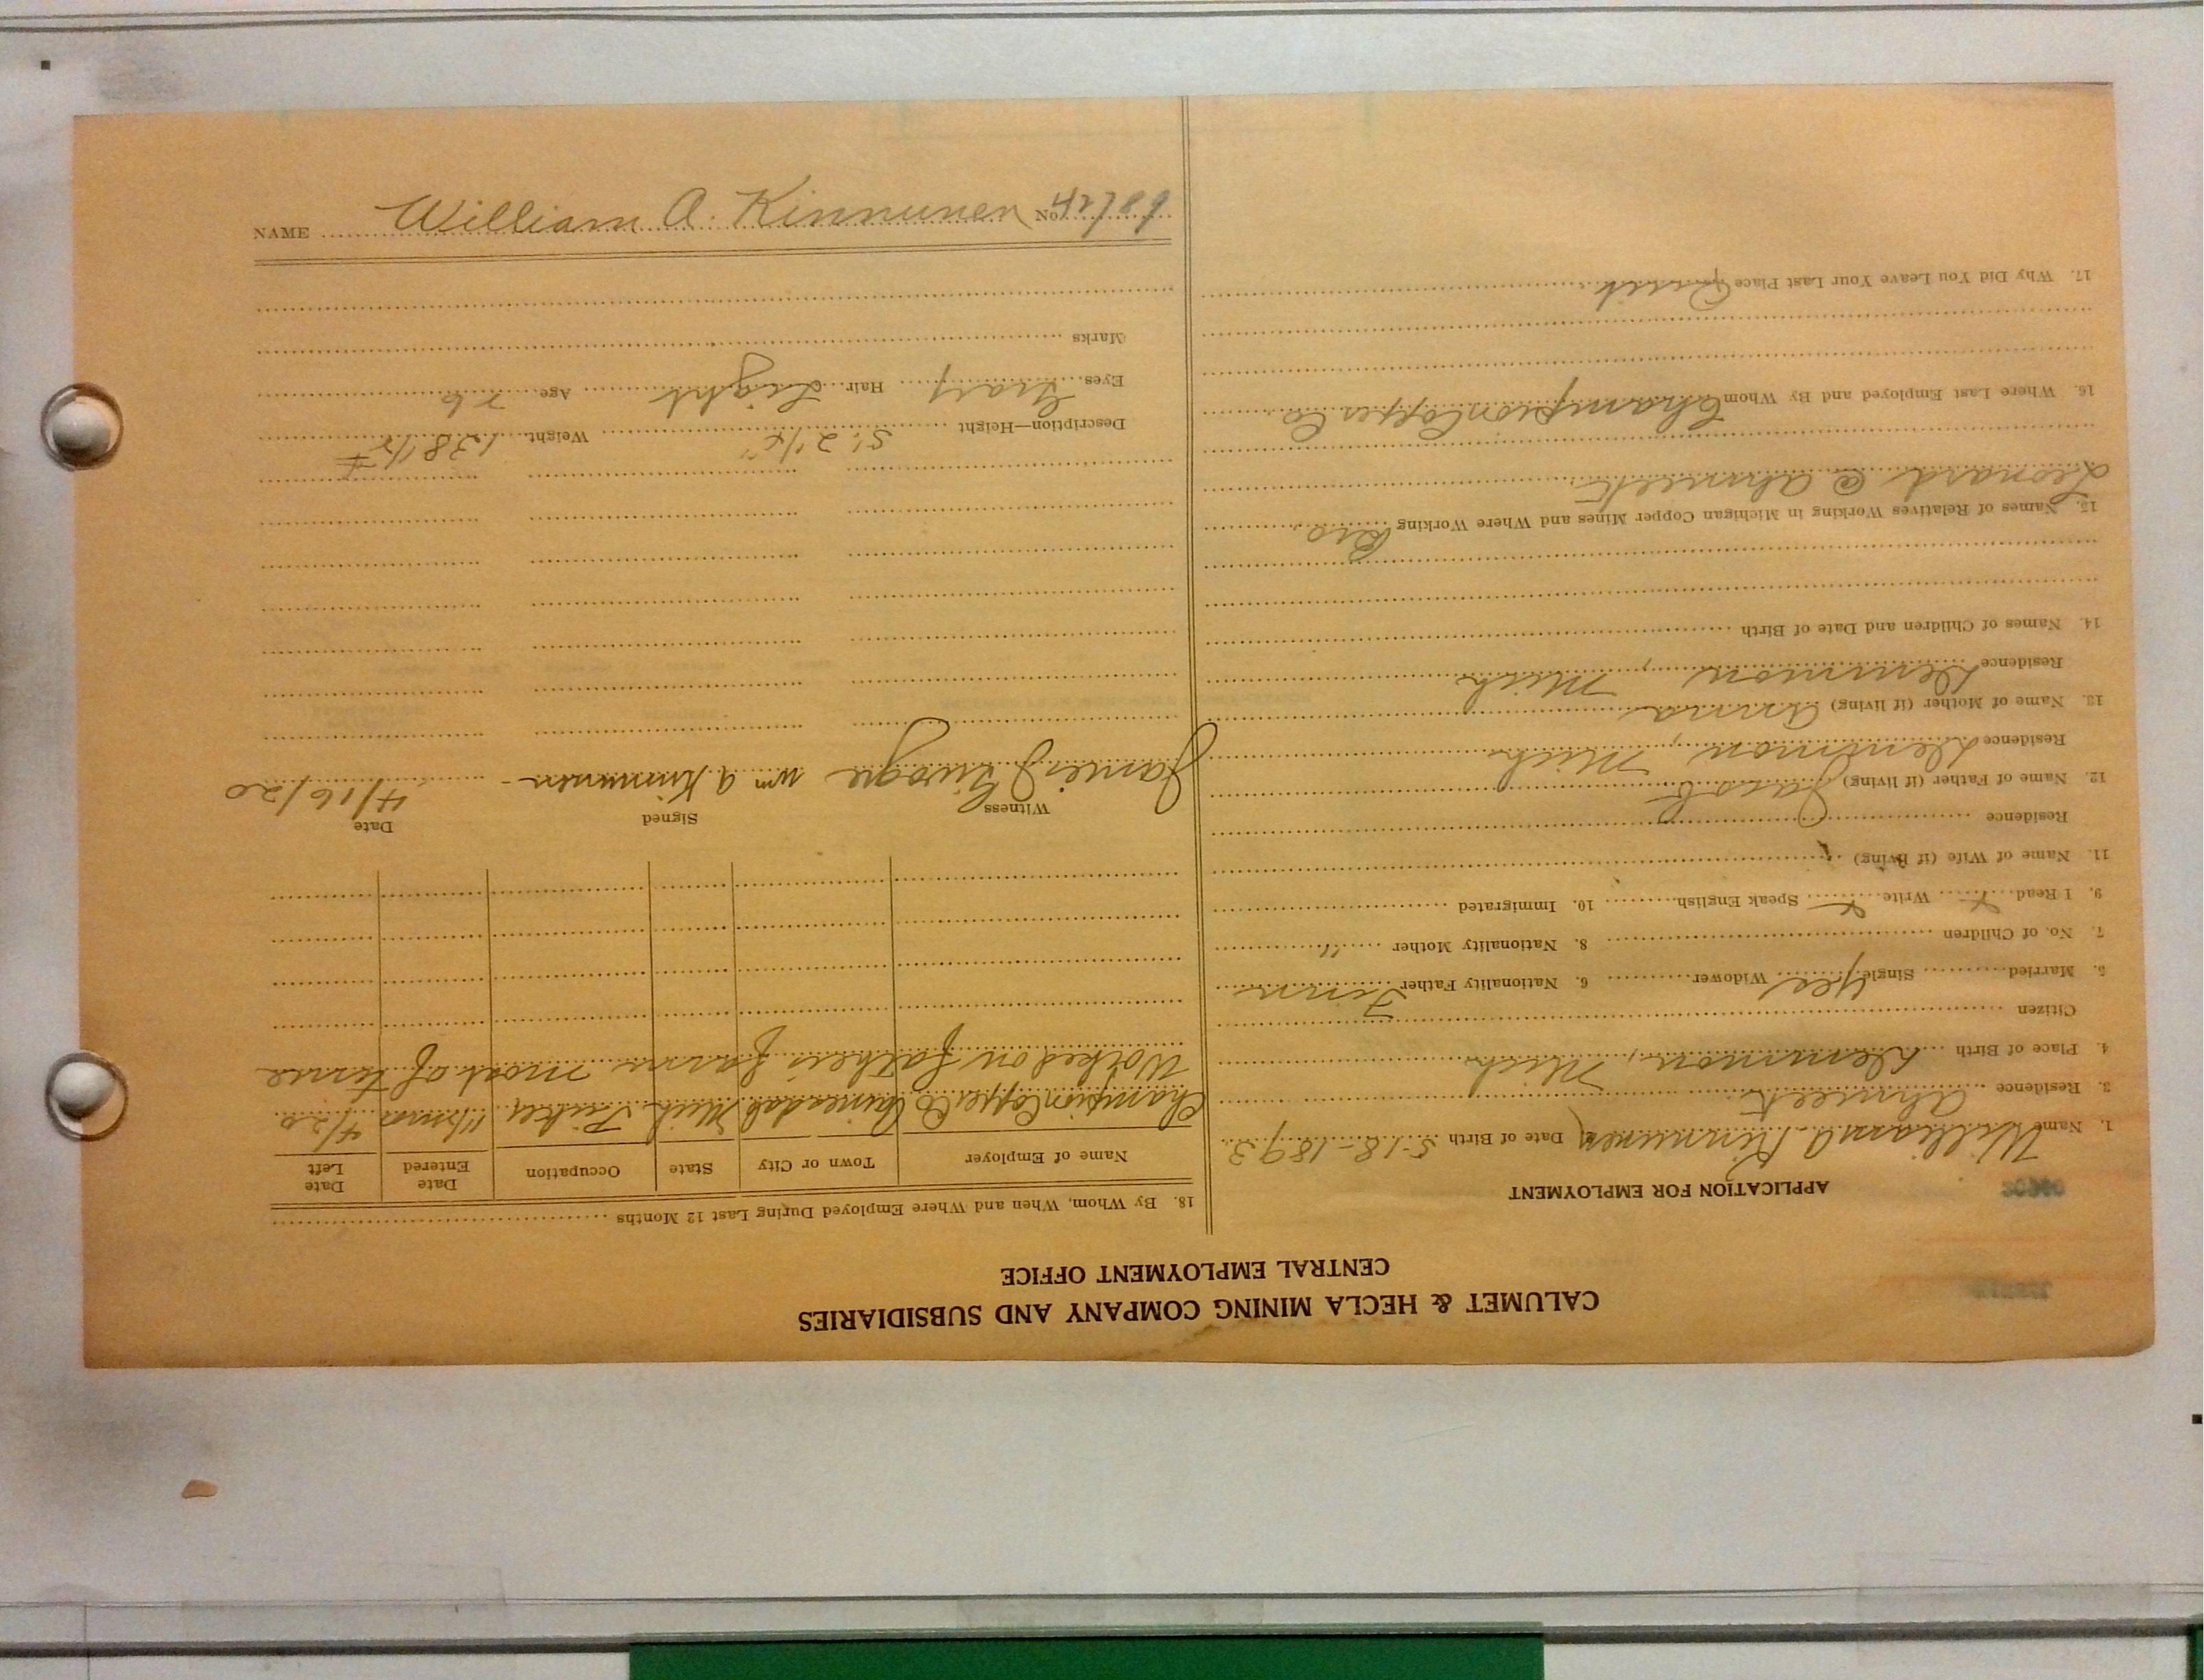 CALUMET & HECLA MINING COMPANY AND SUBSIDIARIES
CENTRAL EMPLOYMENT OFFICE
APPLICATION FOR EMPLOYMENT
1. Name William A. Kinnunen Date of Birth 5-18-1893
3. Residence Ahmeek
4. Place of Birth Demmon, Mich
Citizen
5. Married Single Yes Widower 6. Nationality Father Finn
7. No. of Children 8. Nationality Mother "
9. I Read x Write x Speak English 10. Immigrated
11. Name of Wife (if living)
Residence
12. Name of Father (if living) Jacob
Residence Demmon, Mich
13. Name of Mother (if living) Anna
Residence Demmon, Mich
14. Names of Children and Date of Birth
15. Names of Relatives Working in Michigan Copper Mines and Where Working Bro
Leonard @ Ahmeek
16. Where Last Employed and By Whom Champion Copper Co
17. Why Did You Leave Your Last Place Quit
18. By Whom, When and Where Employed During Last 12 Months
Name of Employer Town or City State Occupation Date Entered Date Left
Champion Copper Co Painesdale Mich 4/20
Worked on fathers farm most of time
Witness Signed Date
James J Wm A Kinnunen 4/16/20
Description—Height 5' 2 1/2" Weight 138 1/2 #
Eyes Gray Hair Light Age 26
Marks
NAME William A. Kinnunen No 42789